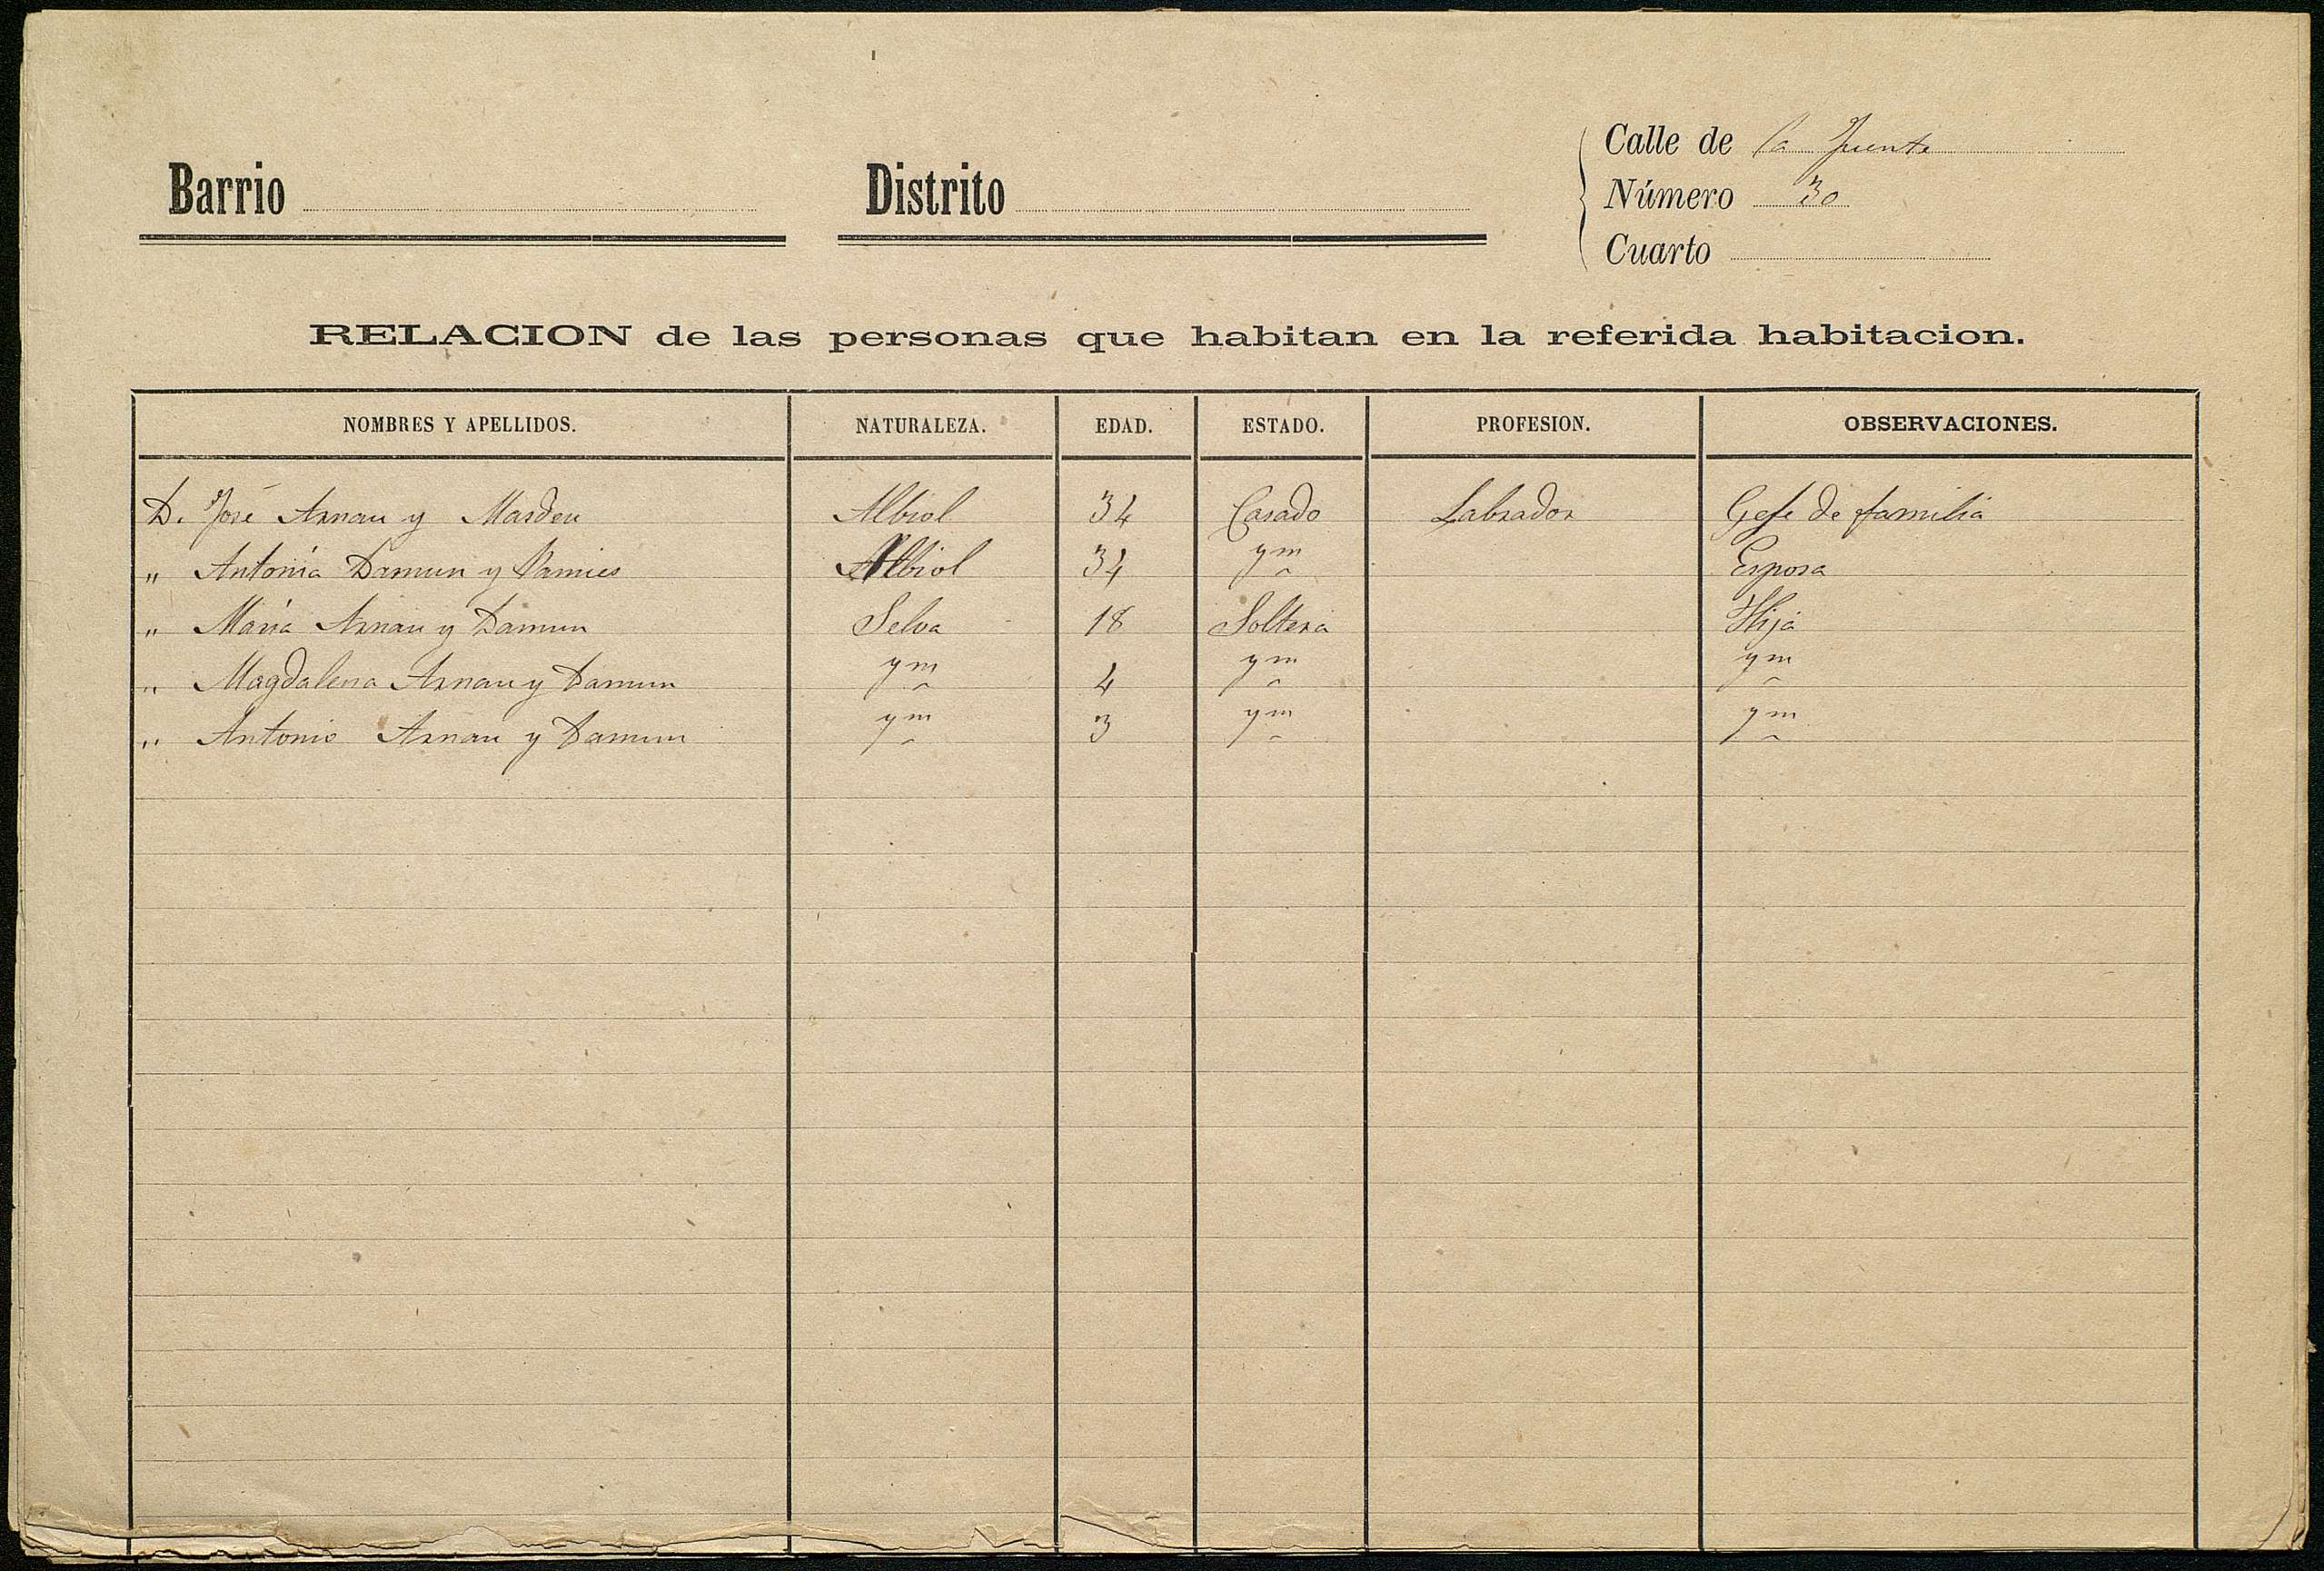 Barrio Distrito
Calle de la Fuente
Número 30
Cuarto
RELACION de las personas que habitan en la referida habitacion.
NOMBRES Y APELLIDOS. NATURALEZA. EDAD. ESTADO. PROFESION. OBSERVACIONES.
D. José Arnau y Masdeu Albiol 34 Casado Labrador Gefe de familia
" Antonia Damun y Pamies Albiol 34 ym Esposa
" María Arnau y Damun Selva 18 Soltera Hija
" Magdalena Arnau y Damun ym 4 ym ym
" Antonio Arnau y Damun ym 3 ym ym